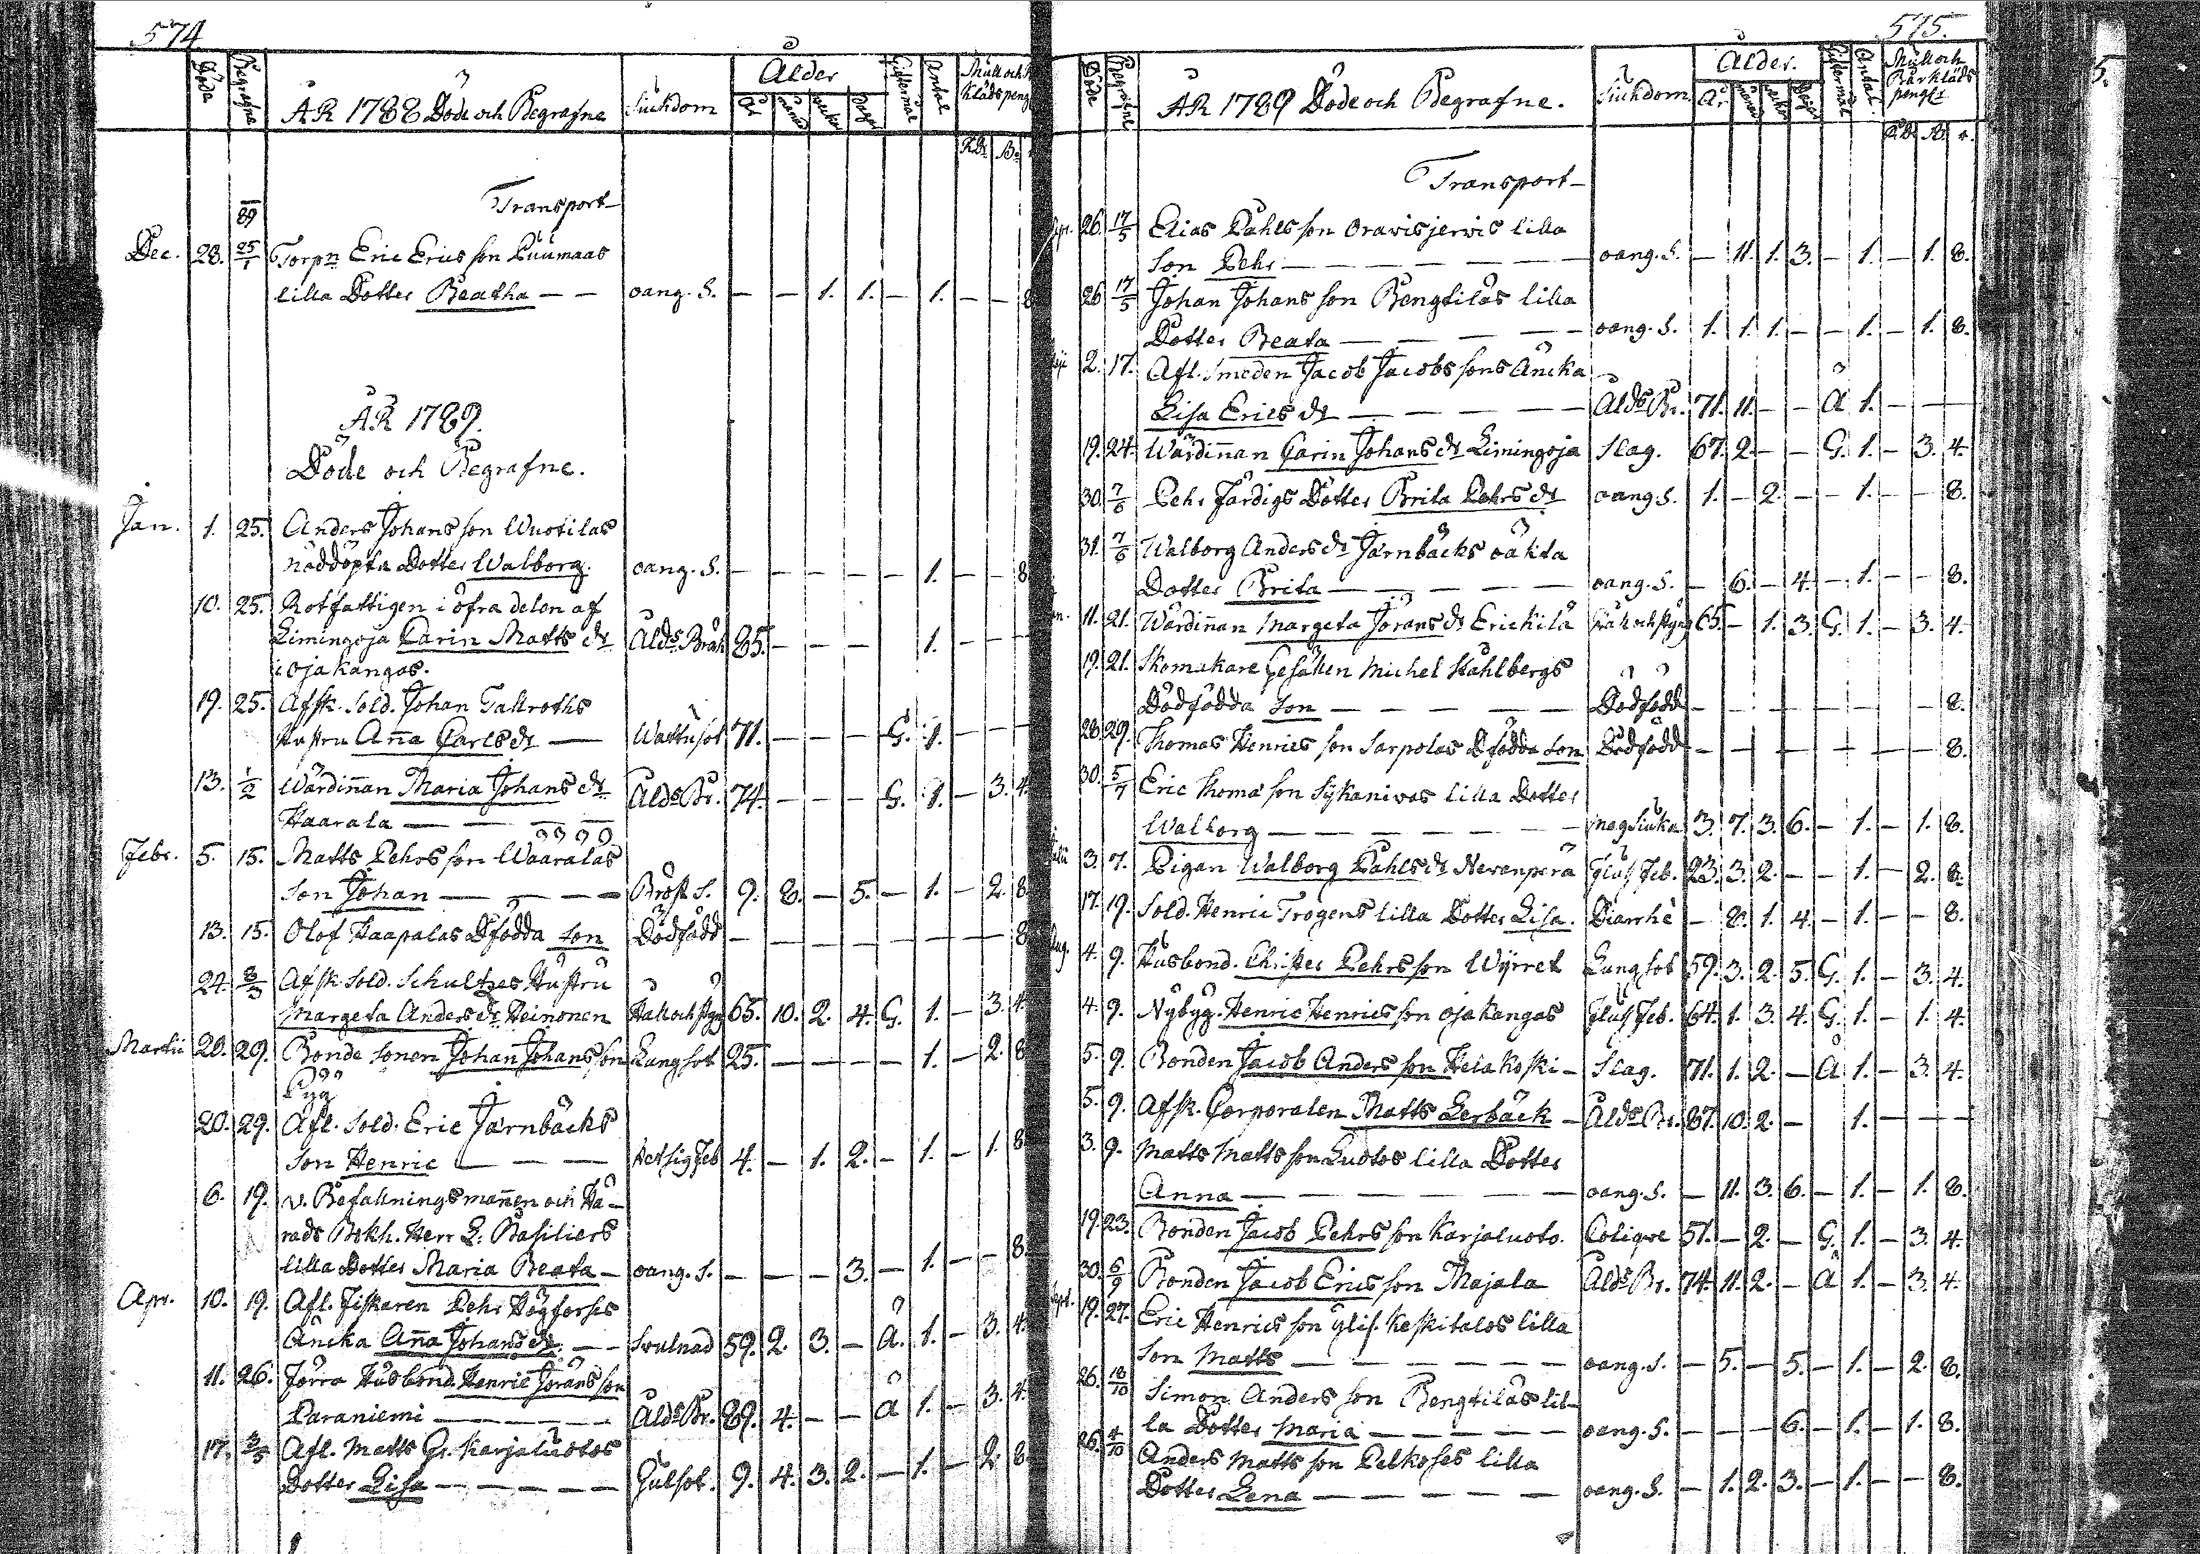 574
Döde Begrafne ÅR 1788 Döde och Begrafne Siuckdom Ålder År månad wecka dagar Giftermål Antal Mull och Klädspeng
Rd. B.
Transport
89
Dec. 28. 25/1 Torpn Eric Erics son Puumaas
lilla Dotter Beatha — — oang. S. — — 1. 1. — 1. — — 8
ÅR 1789.
Döde och Begrafne.
Jan. 1. 25. Anders Johans son Wuotilas
nöddöpta Dotter Walborg. oang. S. — — — — — 1. — — 8
10. 25. Rotfattigen i öfra delen af
Limingoja Carin Matts dr Ålds Bräk 85. — — — 1. — —
i ojakangas.
19. 25. Afsk. Sold. Johan Tallroths
Hustru Anna Carls dr — Wattusot 71. — — — G. 1. — —
13. 1/2 Wärdinnan Maria Johans dr
Haarala — — — — Ålds Br. 74. — — — G. 1. — 3. 4.
Febr. 5. 15. Matts Pehrs son Wääräläs
Son Johan — — — — Bröst S. 9. 8. — 5. — 1. — 2. 8
13. 15. Olof Haapalas Dfödda Son Dödfödd — — — — — — — — 8
24. 8/3 Afsk. Sold. Schultzes Hustru
Margeta Anders dr Heinonen Håll och styng 65. 10. 2. 4. G. 1. — 3. 4.
Martii 20. 29. Bonde Sonen Johan Johans son Lungsot 25. — — — — 1. — 2. 8
Pyy
20. 29. Afl. Sold. Eric Järnbäcks
Son Henric — — — Hetsig Feb 4. — 1. 2. — 1. — 1. 8
6. 19. v. Befallningsmannen och Hä-
rads Bokh. Herr L. Basiliers
lilla Dotter Maria Beata — oang. S. — — — 3. — 1. — — 8.
Apr. 10. 19. Afl. Fiskaren Pehr Högforses
Äncka Anna Johans dr — — Svulnad 59. 2. 3. — Ä. 1. — 3. 4.
11. 26. Förra Husbond. Henric Jörans son
Paraniemi — — — — Ålds Br. 89. 4. — — Ä 1. — 3. 4.
17. 3/5 Afl. Matts Gr. Karjaluotos
Dotter Lisa — — — — Gulsot. 9. 4. 3. 2. — 1. — 2. 8.
575.
Döde Begrafne ÅR 1789 Döde och Begrafne. Siuckdom. Ålder. År månad wecka Dagar Giftermål Antal. Mull och
Bårkläds
penger
Rd. B.
Transport —
26. 17/5 Elias Påhls son Oravisjervis lilla
Son Pehr — — — — — — oang. S. — 11. 1. 3. — 1. — 1. 8.
26 17/5 Johan Johans son Bengtiläs lilla
Dotter Beata — — — — — oang. S. 1. 1. 1. — — 1. — 1. 8.
2. 17. Afl. Smeden Jacob Jacobs sons Äncka
Lisa Erics dr — — — — — Ålds Br. 71. 11. — — Ä 1. — — —
19. 24. Wärdinnan Carin Johans dr Limingoja Slag. 67. 2. — — G. 1. — 3. 4.
30. 7/6 Pehr Färdigs Dotter Brita Pehrs dr oang. S. 1. — 2. — — 1. — — 8.
31. 7/6 Walborg Anders dr Järnbäcks oäkta
Dotter Brita — — — — — oang. S. — 6. — 4. — 1. — — 8.
11. 21. Wärdinnan Margeta Jörans dr Erickilä Håll och styng 65. — 1. 3. G. 1. — 3. 4.
19. 21. Skomakare Gesällen Michel Ståhlbergs
Dödfödda Son — — — — — Dödfödd — — — — — — — — 8.
28. 29. Thomas Henrics son Sarpolas Dfödda Son Dödfödd — — — — — — — — 8.
30. 5/7 Eric Thomas son Sykanivas lilla Dotter
Walborg — — — — — — magsiuka 3. 7. 3. 6. — 1. — 1. 8.
3. 7. Pigan Walborg Påhls dr Nevenperä Fluss Feb. 23. 3. 2. — — 1. — 2. 8.
17. 19. Sold. Henric Trogens lilla Dotter Lisa. Diarrhé — 8. 1. 4. — 1. — — 8.
Aug. 4. 9. Husbond. Christer Pehrs son Wyrret Lungsot 59. 3. 2. 5. G. 1. — 3. 4.
4. 9. Nybyg. Henric Henrics son Ojakangas Fluss Feb. 64. 1. 3. 4. G. 1. — 1. 4.
5. 9. Bonden Jacob Anders son Helakoski — Slag. 71. 1. 2. — Ä 1. — 3. 4.
5. 9. Afsk. Corporalen Matts Lerbäck — Ålds Br. 87. 10. 2. — 1. — — —
3. 9. Matts Matts son Luotos lilla Dotter
Anna — — — — — — oang. S. — 11. 3. 6. — 1. — 1. 8.
19. 23. Bonden Jacob Pehrs son Karjaluoto. Colique 51. — 2. — G. 1. — 3. 4.
30. 6/9 Bonden Jacob Erics son Majala Ålds Br. 74. 11. 2. — Ä 1. — 3. 4.
19. 27. Eric Henrics son Ylis. Keskitalos lilla
Son Matts — — — — — — oang. S. — 5. — 5. — 1. — 2. 8.
26. 18/10 Simon Anders son Bengtiläs lil-
la Dotter Maria — — — — — oang. S. — — — 6. — 1. — 1. 8.
26. 4/10 Anders Matts son Pelkoses lilla
Dotter Lena — — — — — oang. S. — 1. 2. 3. — 1. — — 8.